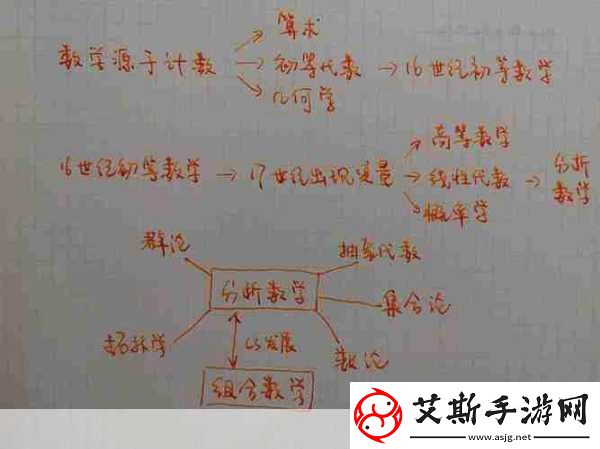 算术
数学源于计数 → 初等代数 → 16世纪初等数学
几何学
高等数学
16世纪初等数学 → 17世纪出现变量 → 线性代数 → 分析数学
概率学
群论
抽象代数
分析数学
集合论
拓扑学
CS发展
数论
组合数学
艾斯手游网
www.asjg.net